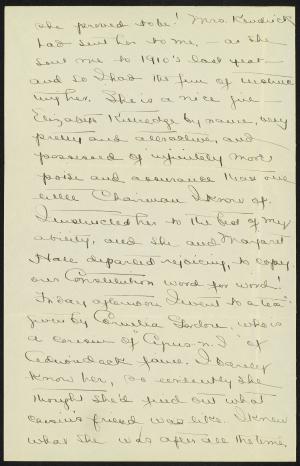 she proved to be! Mrs. Kendrick
had sent her to me, - as she
sent me to 1910's last year -
and so I had the fun of instruc-
ting her. She is a nice girl -
Elizabeth Rutledge by name, very
pretty and attractive, and
possessed of infinitely more
poise and assurance than one
little Chairman I know of.
I instructed her to the best of my
ability, and she and Margaret
Hale departed rejoicing, to copy
our Constitution word for word!
Friday afternoon I went to a "tea"
given by Cornelia Gordon, who is
a cousin of of
Adirondack fame. I barely
know her, so evidently she
thought she'd find out what
cousin's friend was like. I knew
what she was after all the time,